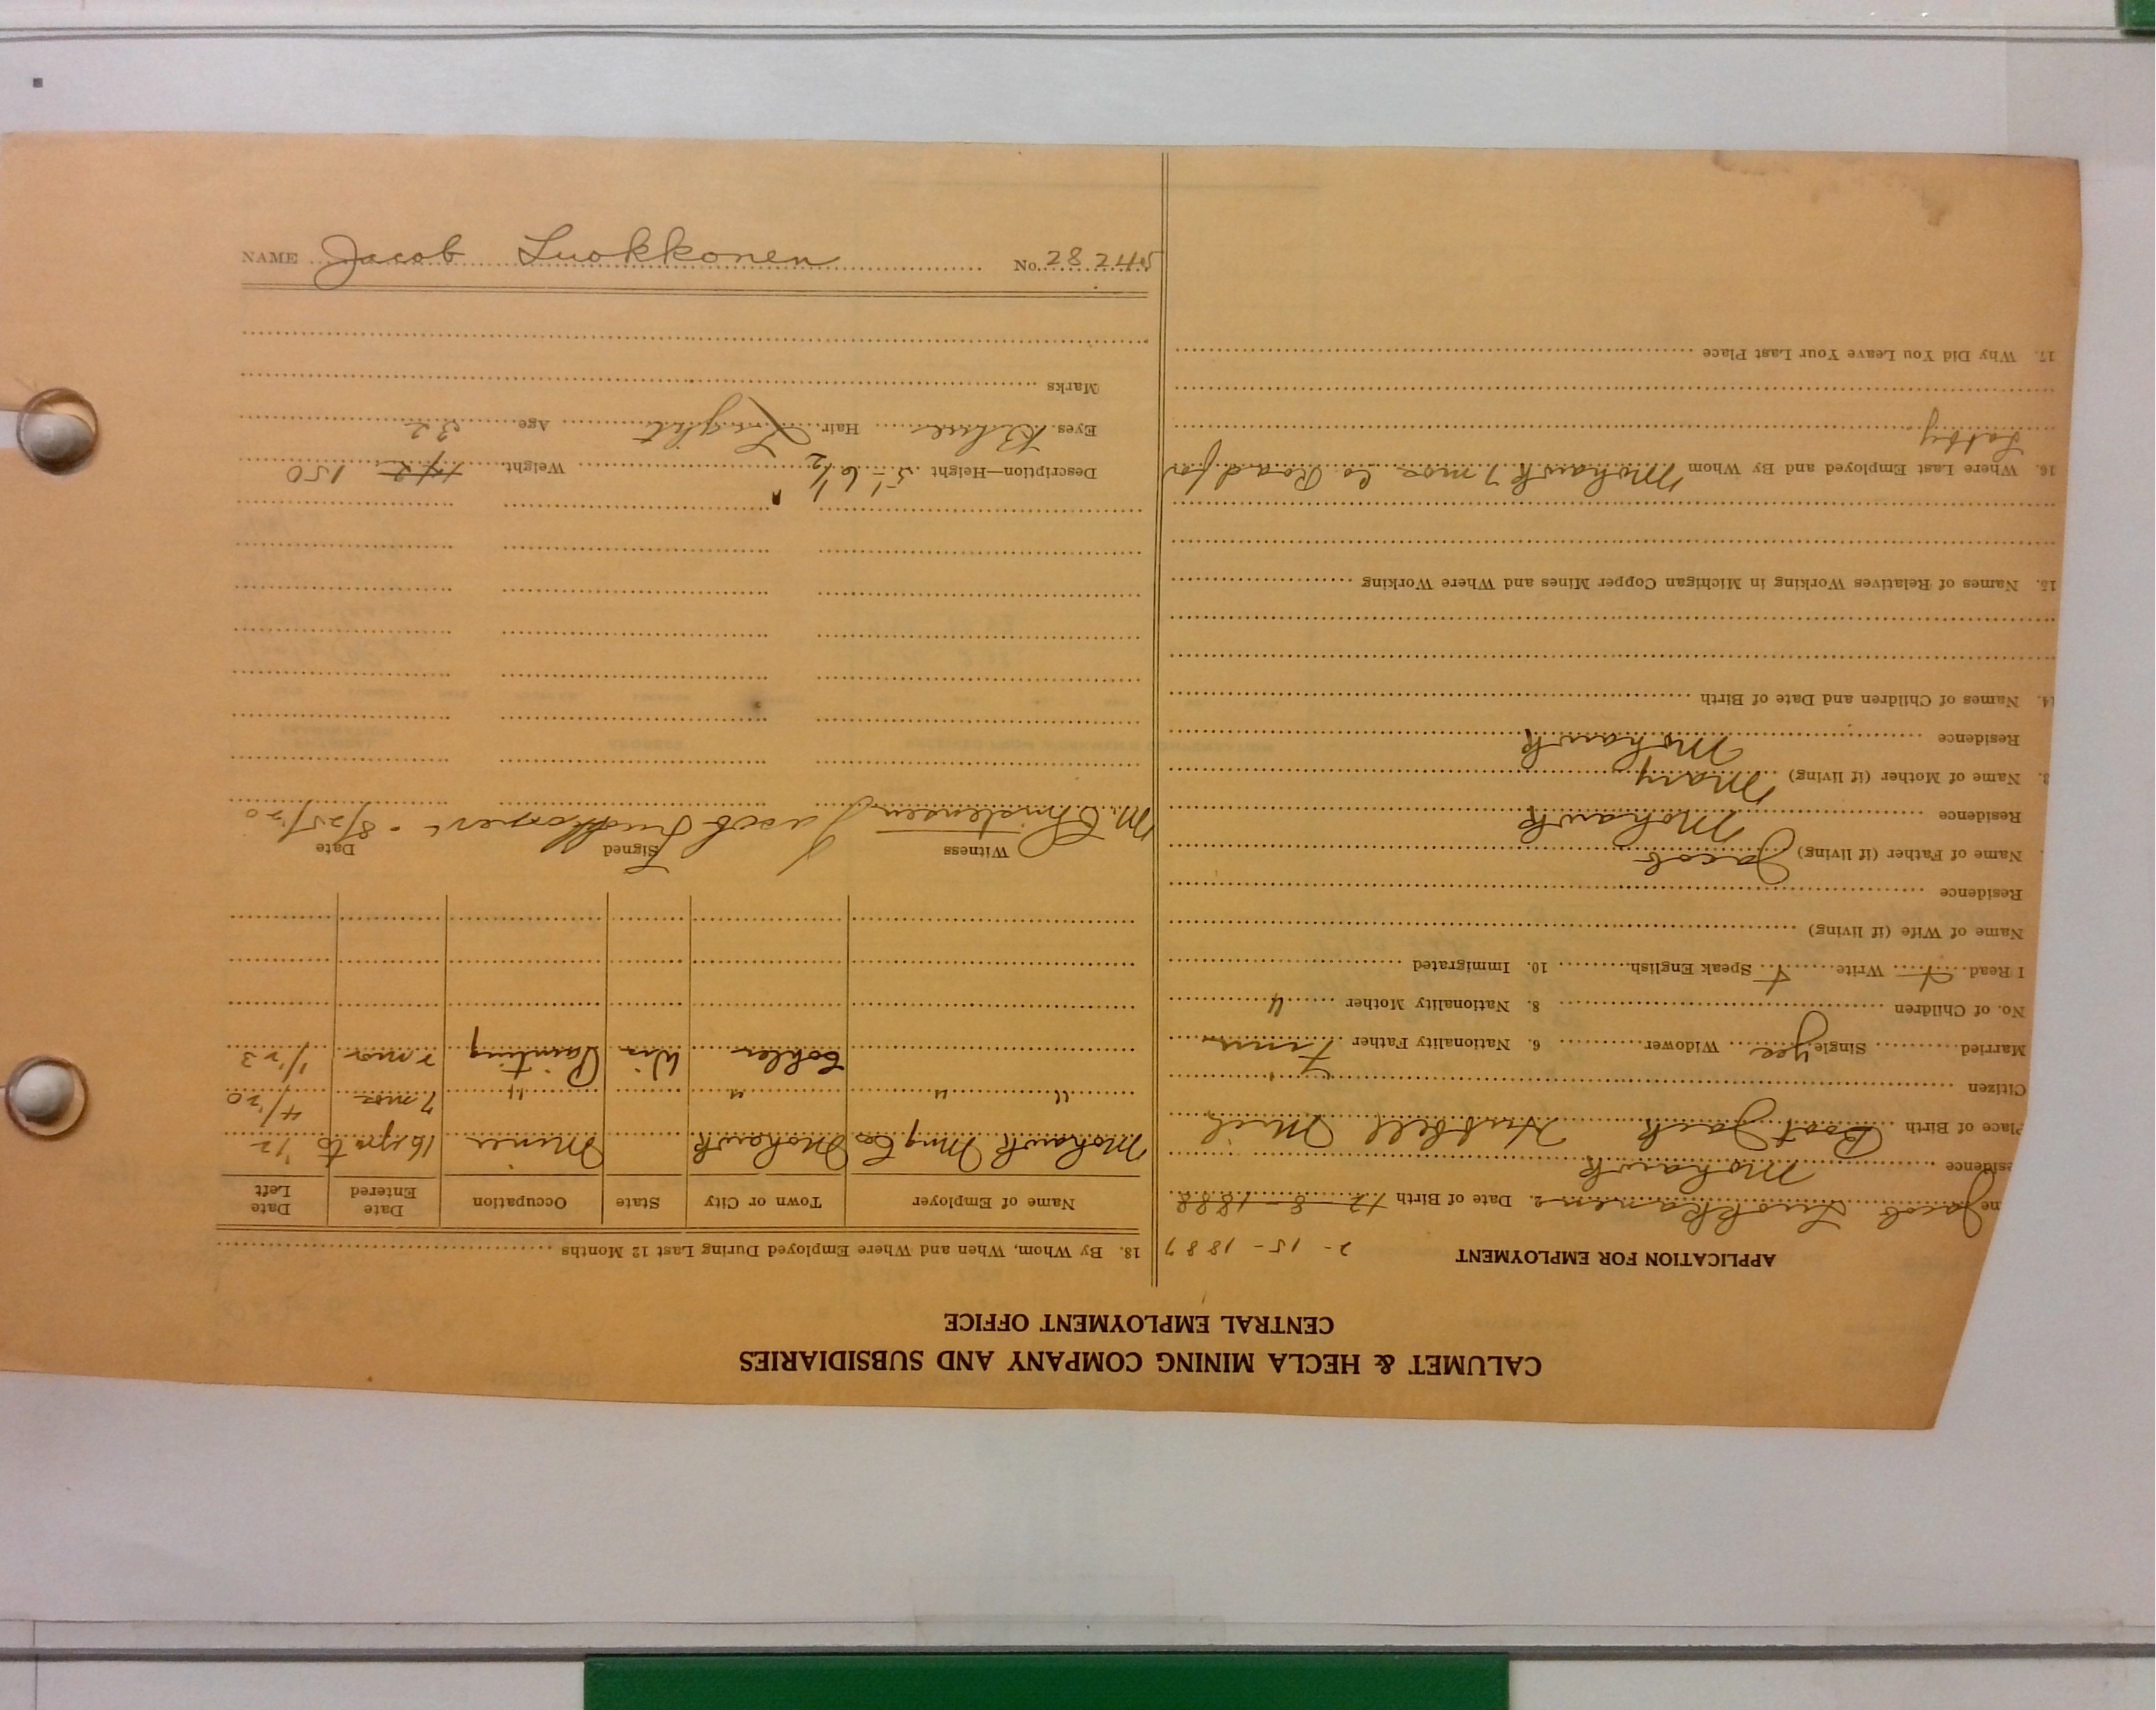 CALUMET & HECLA MINING COMPANY AND SUBSIDIARIES
CENTRAL EMPLOYMENT OFFICE
APPLICATION FOR EMPLOYMENT 2-15-1887
ne Jacob Luokkanen 2. Date of Birth 12-8-1888
esidence Mohawk
Place of Birth Boot Jack Hubbell Mich
Citizen
Married Single yes Widower 6. Nationality Father Finn
No. of Children 8. Nationality Mother "
I Read Write Speak English 10. Immigrated
Name of Wife (if living)
Residence
Name of Father (if living) Jacob
Residence Mohawk
3. Name of Mother (if living) Mary
Residence Mohawk
14. Names of Children and Date of Birth
15. Names of Relatives Working in Michigan Copper Mines and Where Working
16. Where Last Employed and By Whom Mohawk 7 mos Co Road for
17. Why Did You Leave Your Last Place
18. By Whom, When and Where Employed During Last 12 Months
Name of Employer Town or City State Occupation Date Entered Date Left
Mohawk Mng Co Mohawk Miner 16 yrs to
" " " " 7 mos 4/20
Wis Painting 2 mos 1/23
Witness Signed Date
M. Christensen Jacob Luokkonen. 8/25/20
Description—Height 5' 6 1/2" Weight 150
Eyes Blue Hair Light Age 32
Marks
NAME Jacob Luokkonen No. 28245